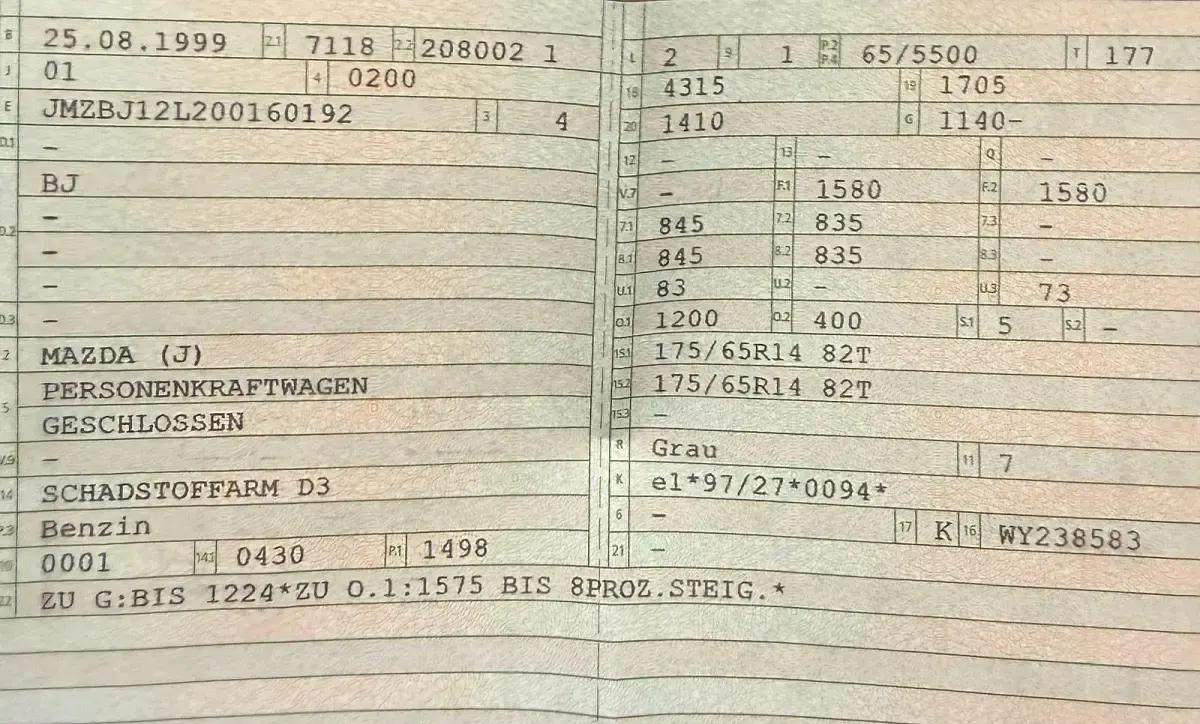 B 25.08.1999 2.1 7118 2.2 208002 1
J 01 4 0200
E JMZBJ12L200160192 3 4
D.1 –
BJ
D.2 –
–
–
D.3 –
2 MAZDA (J)
5 PERSONENKRAFTWAGEN
GESCHLOSSEN
V.9 –
14 SCHADSTOFFARM D3
P.3 Benzin
10 0001 14.1 0430 P.1 1498
22 ZU G:BIS 1224*ZU O.1:1575 BIS 8PROZ.STEIG.*
L 2 9 1 P.2 P.4 65/5500 T 177
18 4315 19 1705
20 1410 G 1140-
12 – 13 – Q –
V.7 – F.1 1580 F.2 1580
7.1 845 7.2 835 7.3 –
8.1 845 8.2 835 8.3 –
U.1 83 U.2 – U.3 73
O.1 1200 O.2 400 S.1 5 S.2 –
15.1 175/65R14 82T
15.2 175/65R14 82T
15.3 –
R Grau 11 7
K e1*97/27*0094*
6 – 17 K 16 WY238583
21 –